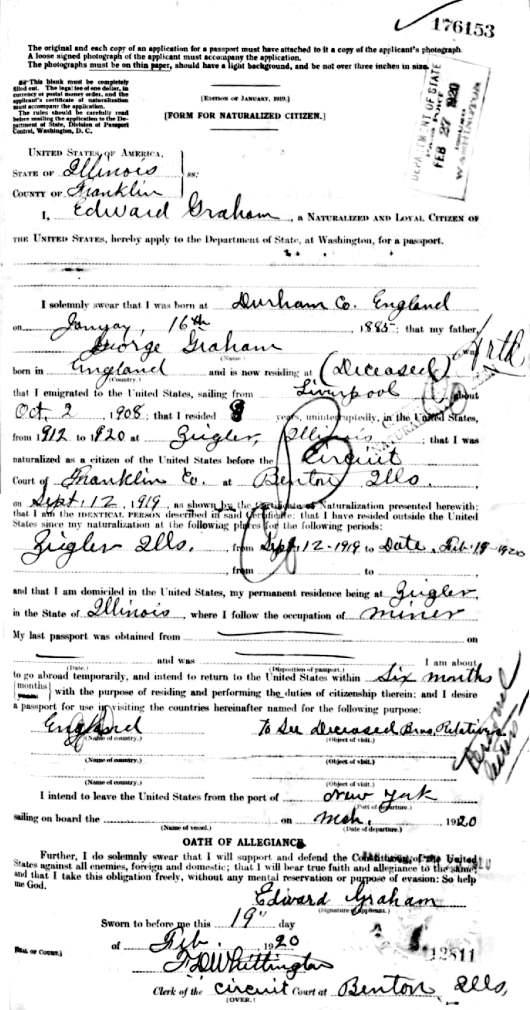 176153
The original and each copy of an application for a passport must have attached to it a copy of the applicant's photograph.
A loose signed photograph of the applicant must accompany the application.
The photographs must be on thin paper, should have a light background, and be not over three inches in size.
This blank must be completely
filled out. The legal fee of one dollar, in
currency or postal money order, and the
applicant's certificate of naturalization
must accompany the application.
The rules should be carefully read
before mailing the application to the De-
partment of State, Division of Passport
Control, Washington, D. C.
[EDITION OF JANUARY, 1919.]
[FORM FOR NATURALIZED CITIZEN.]
DEPARTMENT OF STATE
FEB 27 1920
WASHINGTON
UNITED STATES OF AMERICA,
STATE OF Illinois
COUNTY OF Franklin
ss:
I, Edward Graham, A NATURALIZED AND LOYAL CITIZEN OF
THE UNITED STATES, hereby apply to the Department of State, at Washington, for a passport.
I solemnly swear that I was born at Durham Co. England
on January, 16th, 1885; that my father
George Graham
(Name.)
born in England and is now residing at (Deceased)
(Country.)
that I emigrated to the United States, sailing from Liverpool about
Oct. 2, 1908; that I resided 8 years, uninterruptedly, in the United States,
from 1912 to 1920 at Zeigler, Illinois; that I was
naturalized as a citizen of the United States before the Circuit
Court of Franklin Co. at Benton Ills.
on Sept. 12, 1919, as shown by the Certificate of Naturalization presented herewith;
that I am the IDENTICAL PERSON described in said Certificate; that I have resided outside the United
States since my naturalization at the following places for the following periods:
Zigler Ills., from Sept. 12-1919 to Date, Feb. 19-1920
, from to
and that I am domiciled in the United States, my permanent residence being at Zigler,
in the State of Illinois, where I follow the occupation of miner
My last passport was obtained from on
and was I am about
(Date.) (Disposition of passport.)
to go abroad temporarily, and intend to return to the United States within Six months
months
years
with the purpose of residing and performing the duties of citizenship therein; and I desire
a passport for use in visiting the countries hereinafter named for the following purpose:
England To See Deceased Bros. Relatives
(Name of country.) (Object of visit.)
(Name of country.) (Object of visit.)
(Name of country.) (Object of visit.)
I intend to leave the United States from the port of New York
(Port of departure.)
sailing on board the on Mch. 1920
(Name of vessel.) (Date of departure.)
OATH OF ALLEGIANCE.
Further, I do solemnly swear that I will support and defend the Constitution of the United
States against all enemies, foreign and domestic; that I will bear true faith and allegiance to the same;
and that I take this obligation freely, without any mental reservation or purpose of evasion: So help
me God.
Edward Graham
(Signature of applicant.)
Sworn to before me this 19" day
of Feb. 1920
[SEAL OF COURT.]
12811
Clerk of the Circuit Court at Benton Ills,
[OVER.]